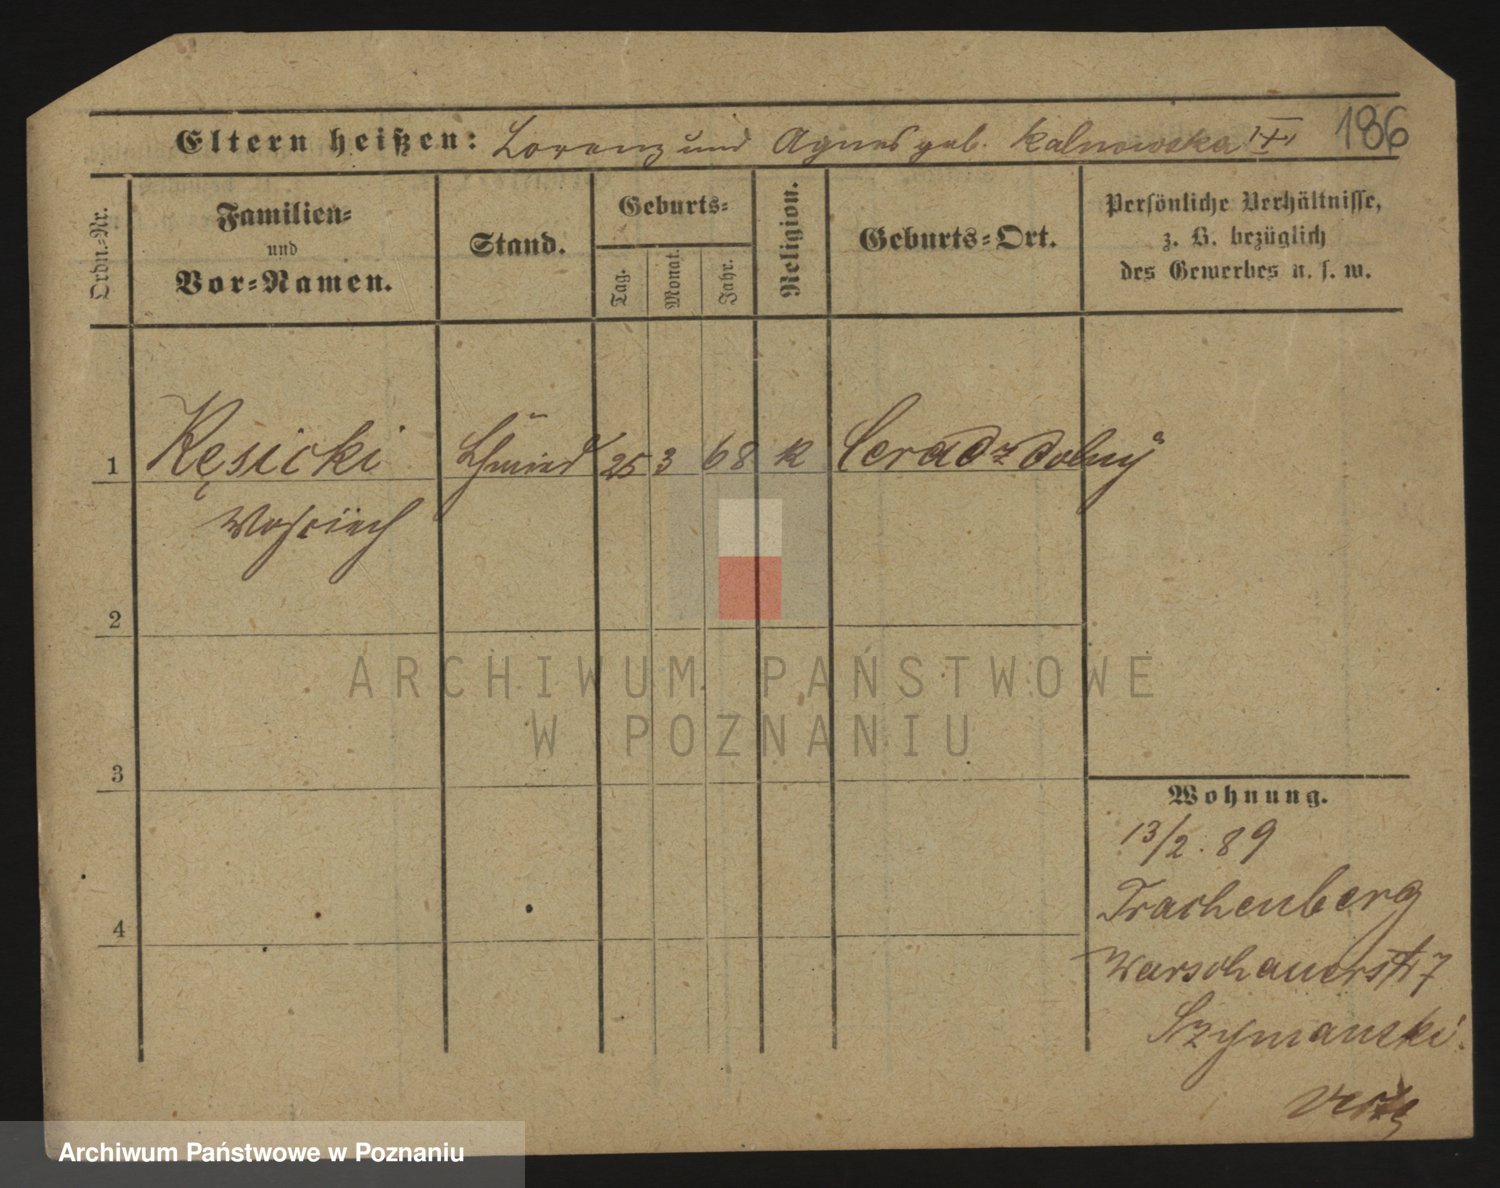 186
Eltern heißen: Lorenz und Agnes geb. Kalnowska
Ordn.-Nr.
Familien-
und
Vor-Namen.
Stand.
Geburts-
Tag.
Monat.
Jahr.
Religion.
Geburts-Ort.
Persönliche Verhältnisse,
z. B. bezüglich
des Gewerbes u. s. w.
1 Kęsicki Schmied 25 3 68 K Ceradz dolny
Wojciech
2
3
4
Wohnung.
13/2. 89
Trachenberg
Warschauerstr 7
Szymanski.
ARCHIWUM PAŃSTWOWE
W POZNANIU
Archiwum Państwowe w Poznaniu